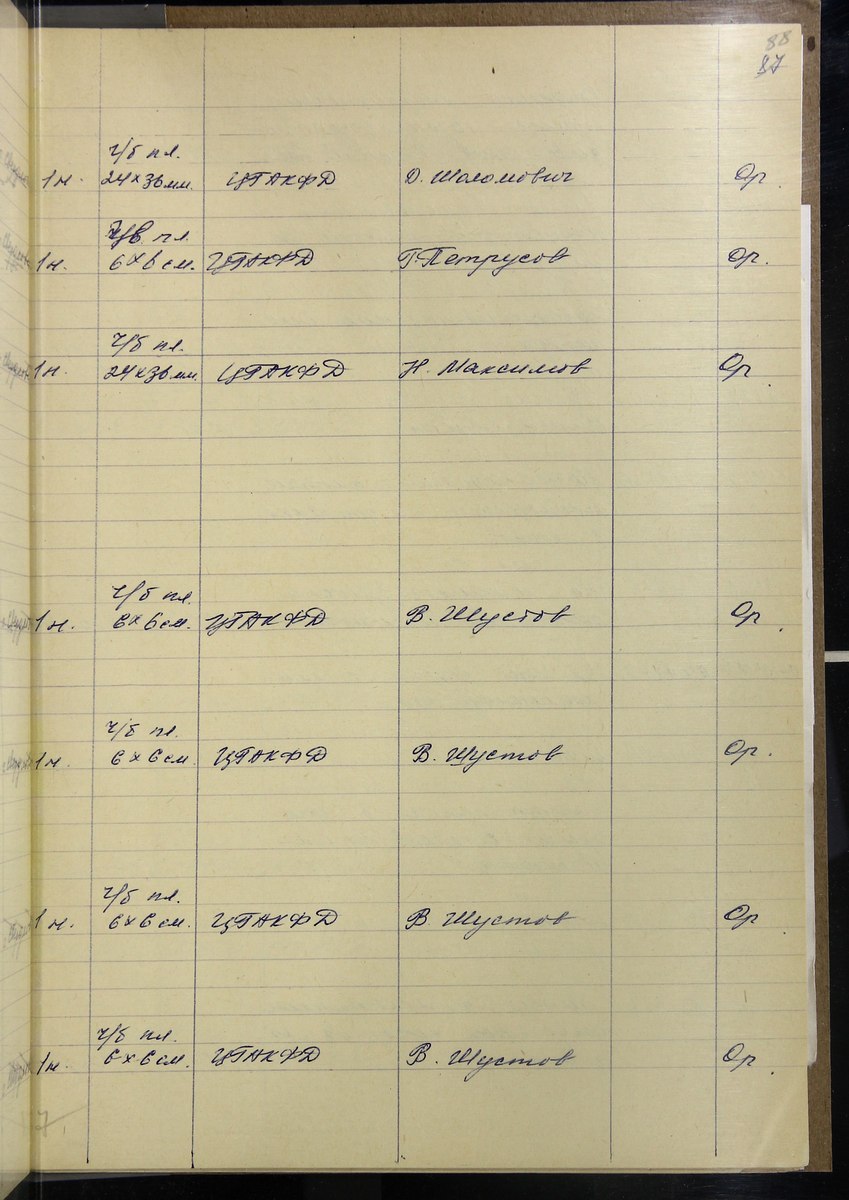 88
87
ч/б пл.
1 н. 24×36 мм. ЦГАКФД Д. Шоломович Ор.
ч/б пл.
1 н. 6×6 см. ЦГАКФД Г. Петрусов Ор.
ч/б пл.
1 н. 24×36 мм. ЦГАКФД Н. Максимов Ор.
ч/б пл.
1 н. 6×6 см. ЦГАКФД В. Шустов Ор.
ч/б пл.
1 н. 6×6 см ЦГАКФД В. Шустов Ор.
ч/б пл.
1 н. 6×6 см. ЦГАКФД В Шустов Ор.
ч/б пл.
1 н. 6×6 см. ЦГАКФД В. Шустов Ор.